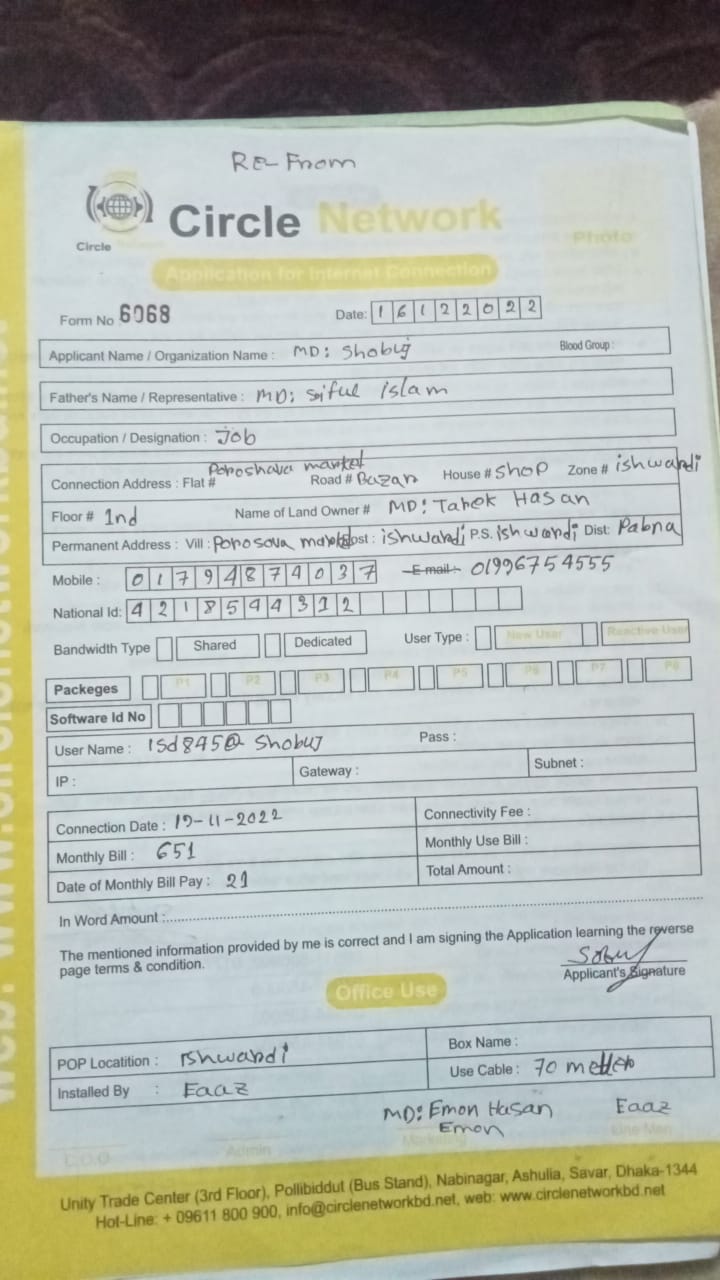 RE- From
Circle Network
Circle
Photo
Application for Internet Connection
Form No 6068 Date: 16122022
Applicant Name / Organization Name : MD: Shobuj Blood Group :
Father's Name / Representative : MD: Siful islam
Occupation / Designation : Job
Poroshava market
Connection Address : Flat # Road # Bazar House # Shop Zone # ishwardi
Floor # 1nd Name of Land Owner # MD: Tarek Hasan
Permanent Address : Vill : Porosova Post : ishwardi P.S. ishwardi Dist: Pabna
Mobile : 01794874037 E-mail : 01996754555
National Id: 4218544312
Bandwidth Type Shared Dedicated User Type : New User Reactive User
Packeges P1 P2 P3 P4 P5 P6 P7 P8
Software Id No
User Name : isd845@ Shobuj Pass :
IP : Gateway : Subnet :
Connection Date : 19-11-2022 Connectivity Fee :
Monthly Bill : 651 Monthly Use Bill :
Date of Monthly Bill Pay : 21 Total Amount :
In Word Amount :
The mentioned information provided by me is correct and I am signing the Application learning the reverse
page terms & condition.
Applicant's Signature
Office Use
POP Locatition : ishwardi Box Name :
Installed By : Eaaz Use Cable : 70 metter
MD: Emon Hasan Eaaz
Emon
C.O.O Admin Marketing Line Man
Unity Trade Center (3rd Floor), Pollibiddut (Bus Stand), Nabinagar, Ashulia, Savar, Dhaka-1344
Hot-Line: + 09611 800 900, info@circlenetworkbd.net, web: www.circlenetworkbd.net